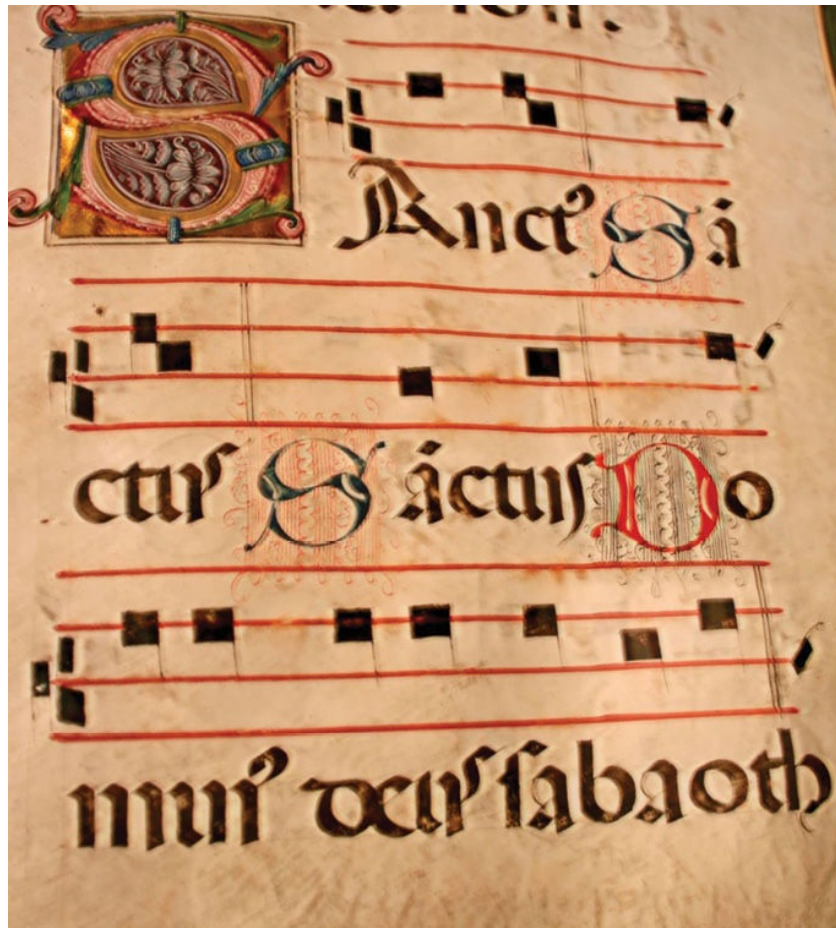 SAnctꝰ Sá
ctus Sáctus Do
minꝰ deus sabaoth